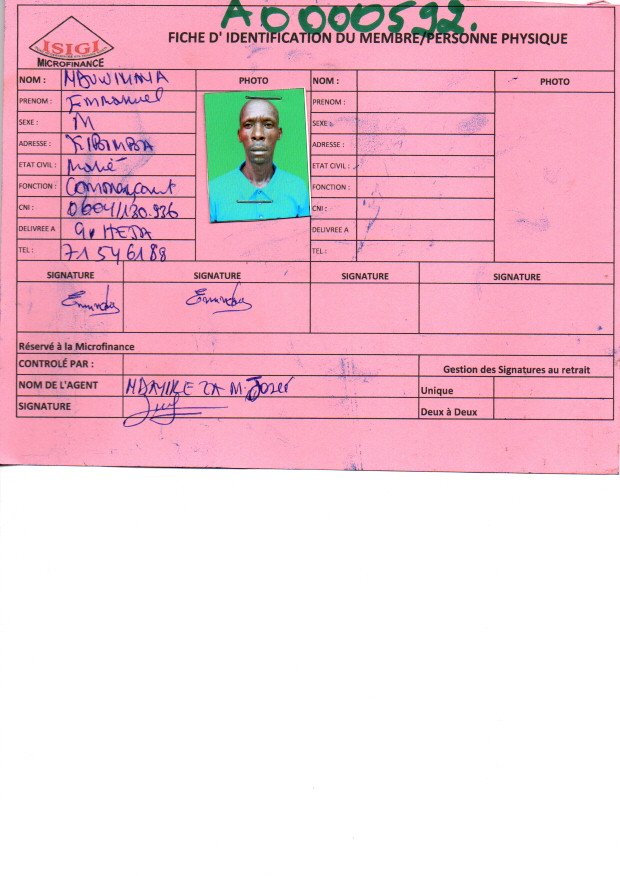 A00000592.
ISIGI
MICROFINANCE
FICHE D' IDENTIFICATION DU MEMBRE/PERSONNE PHYSIQUE
NOM : PHOTO NOM : PHOTO
PRENOM : Emmanuel PRENOM :
SEXE : M SEXE :
ADRESSE : KIBIMBA ADRESSE :
ETAT CIVIL : Marié ETAT CIVIL :
FONCTION : Commerçant FONCTION :
CNI : CNI :
DELIVREE A DELIVREE A
TEL : 71546188 TEL :
SIGNATURE SIGNATURE SIGNATURE SIGNATURE
Réservé à la Microfinance
CONTROLÉ PAR : Gestion des Signatures au retrait
NOM DE L'AGENT Unique
SIGNATURE Deux à Deux